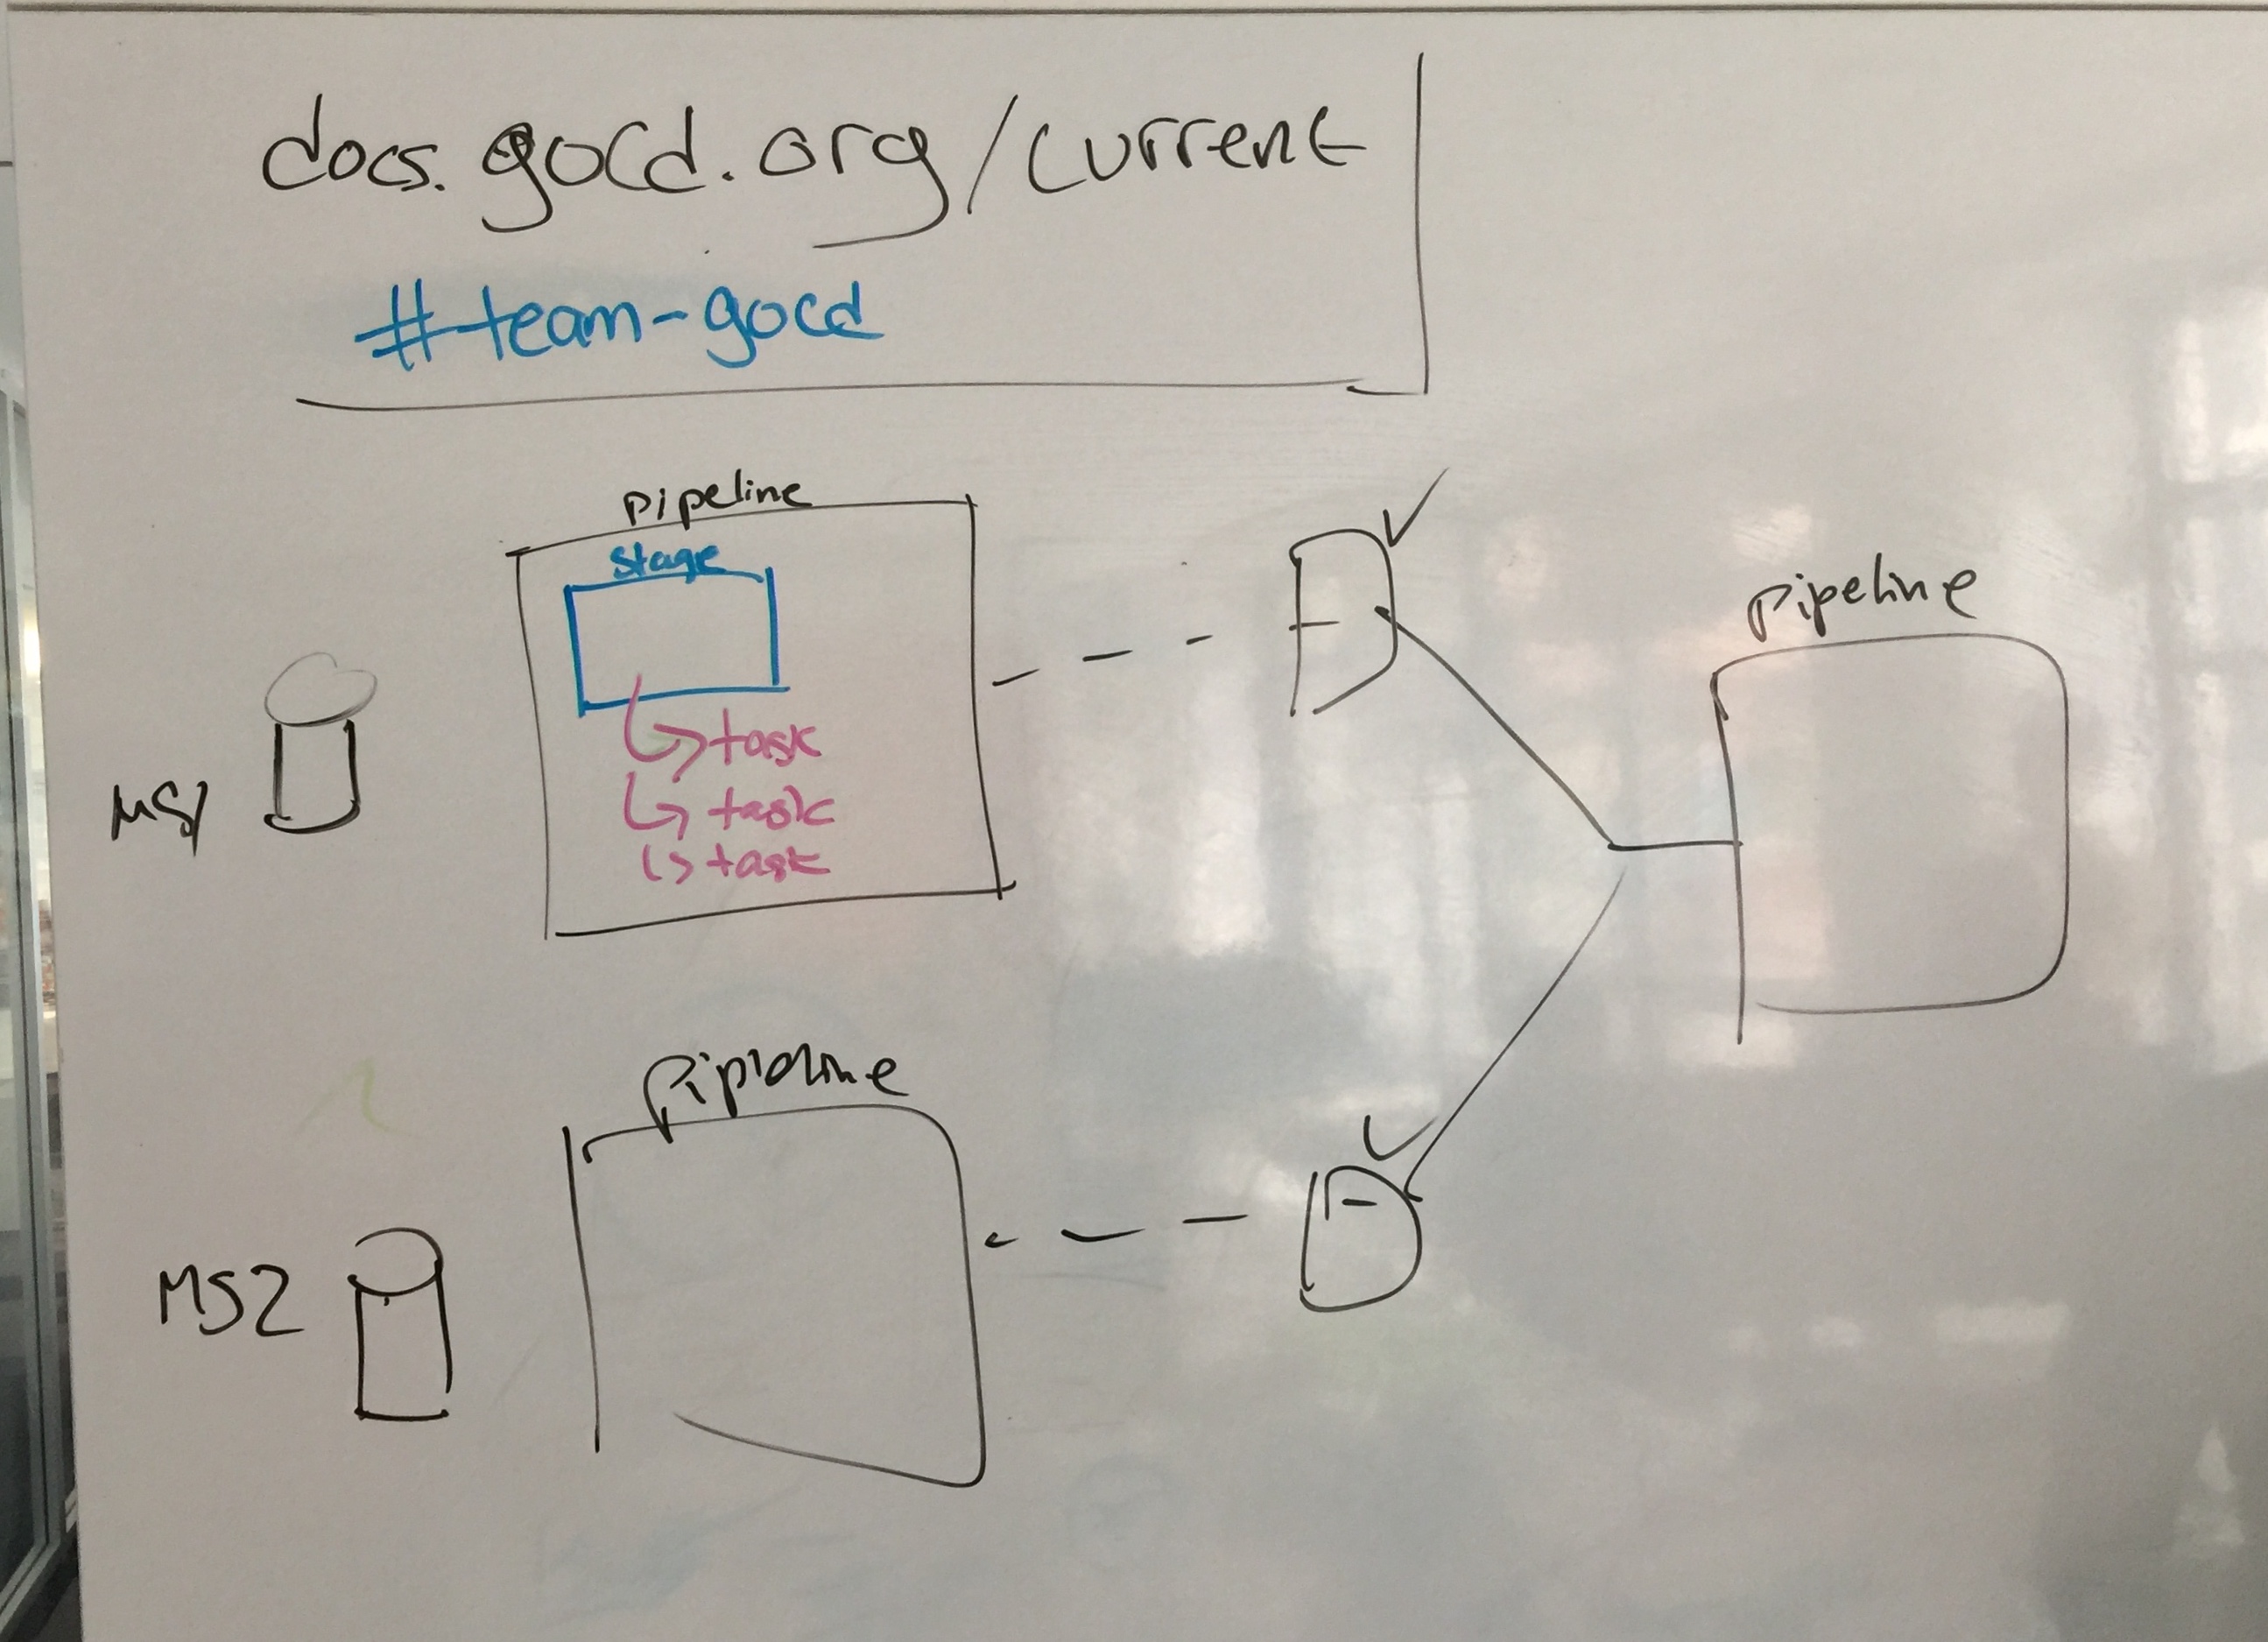 docs.gocd.org/current
#team-gocd
pipeline
stage
task
task
task
MS1
pipeline
pipeline
MS2